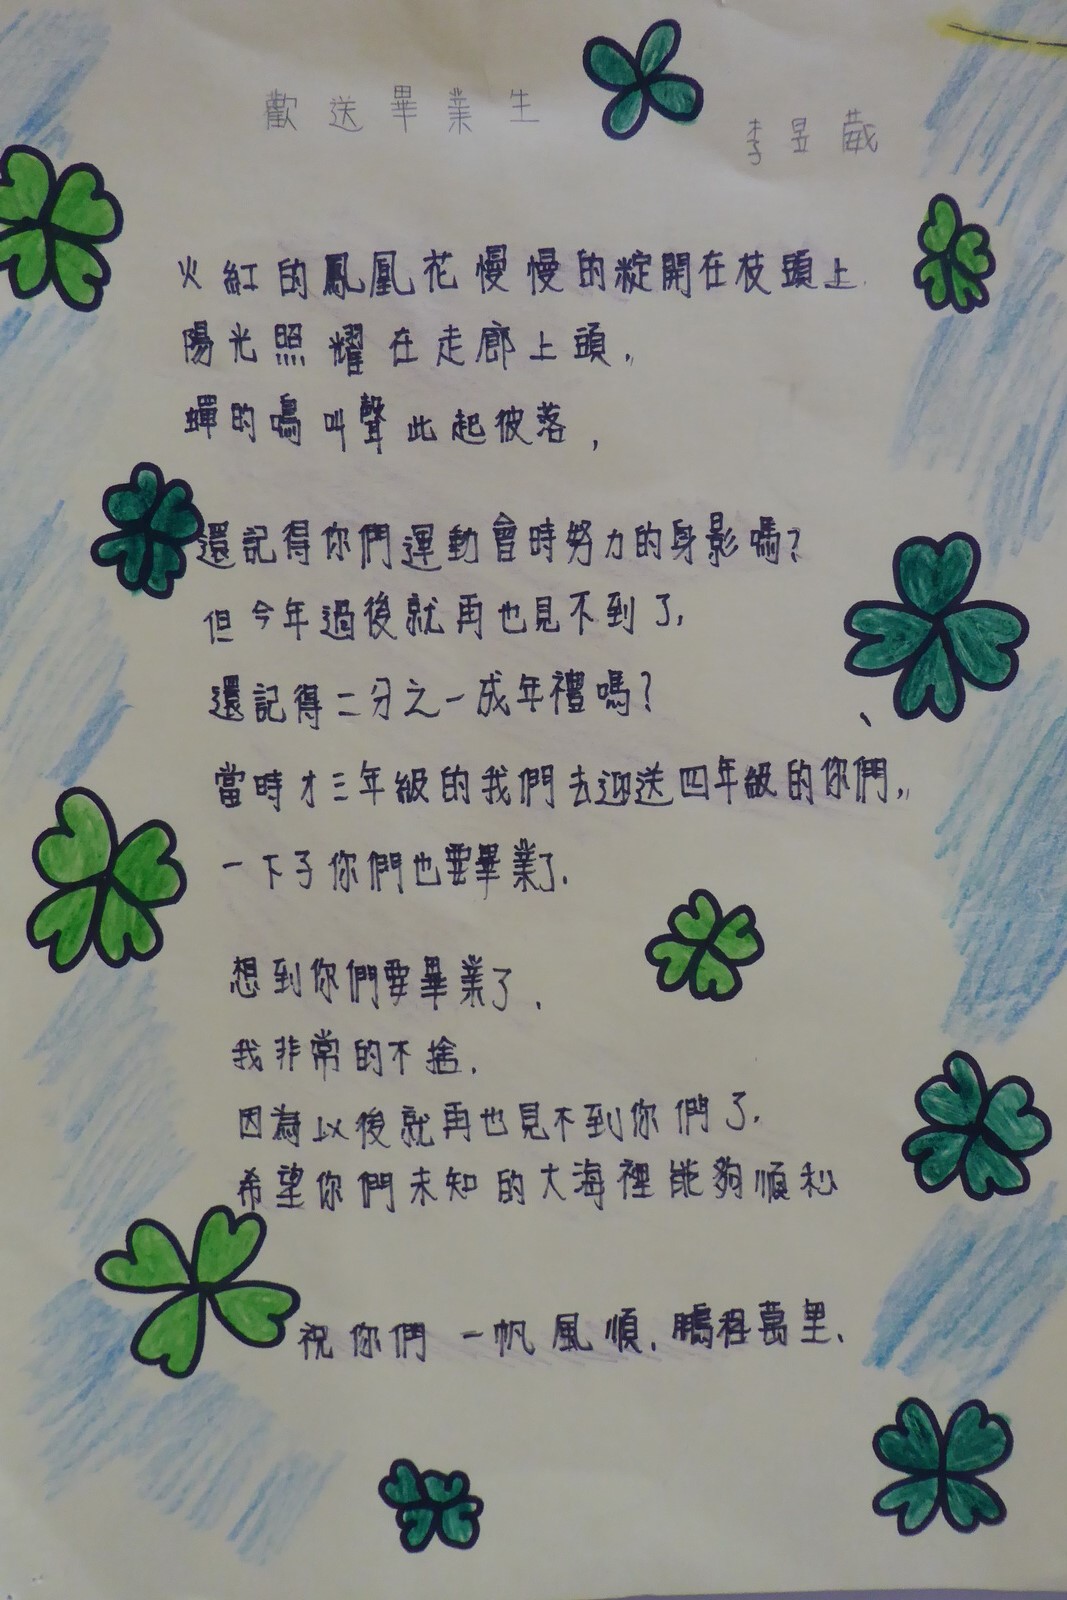 歡送畢業生
李昱葳
火紅的鳳凰花慢慢的綻開在枝頭上
陽光照耀在走廊上頭,
蟬的鳴叫聲此起彼落,
還記得你們運動會時努力的身影嗎?
但今年過後就再也見不到了,
還記得二分之一成年禮嗎?
當時才三年級的我們去迎送四年級的你們,,
一下子你們也要畢業了.
想到你們要畢業了,
我非常的不捨.
因為以後就再也見不到你們了.
希望你們未知的大海裡能夠順利
祝你們 一帆風順.鵬程萬里、